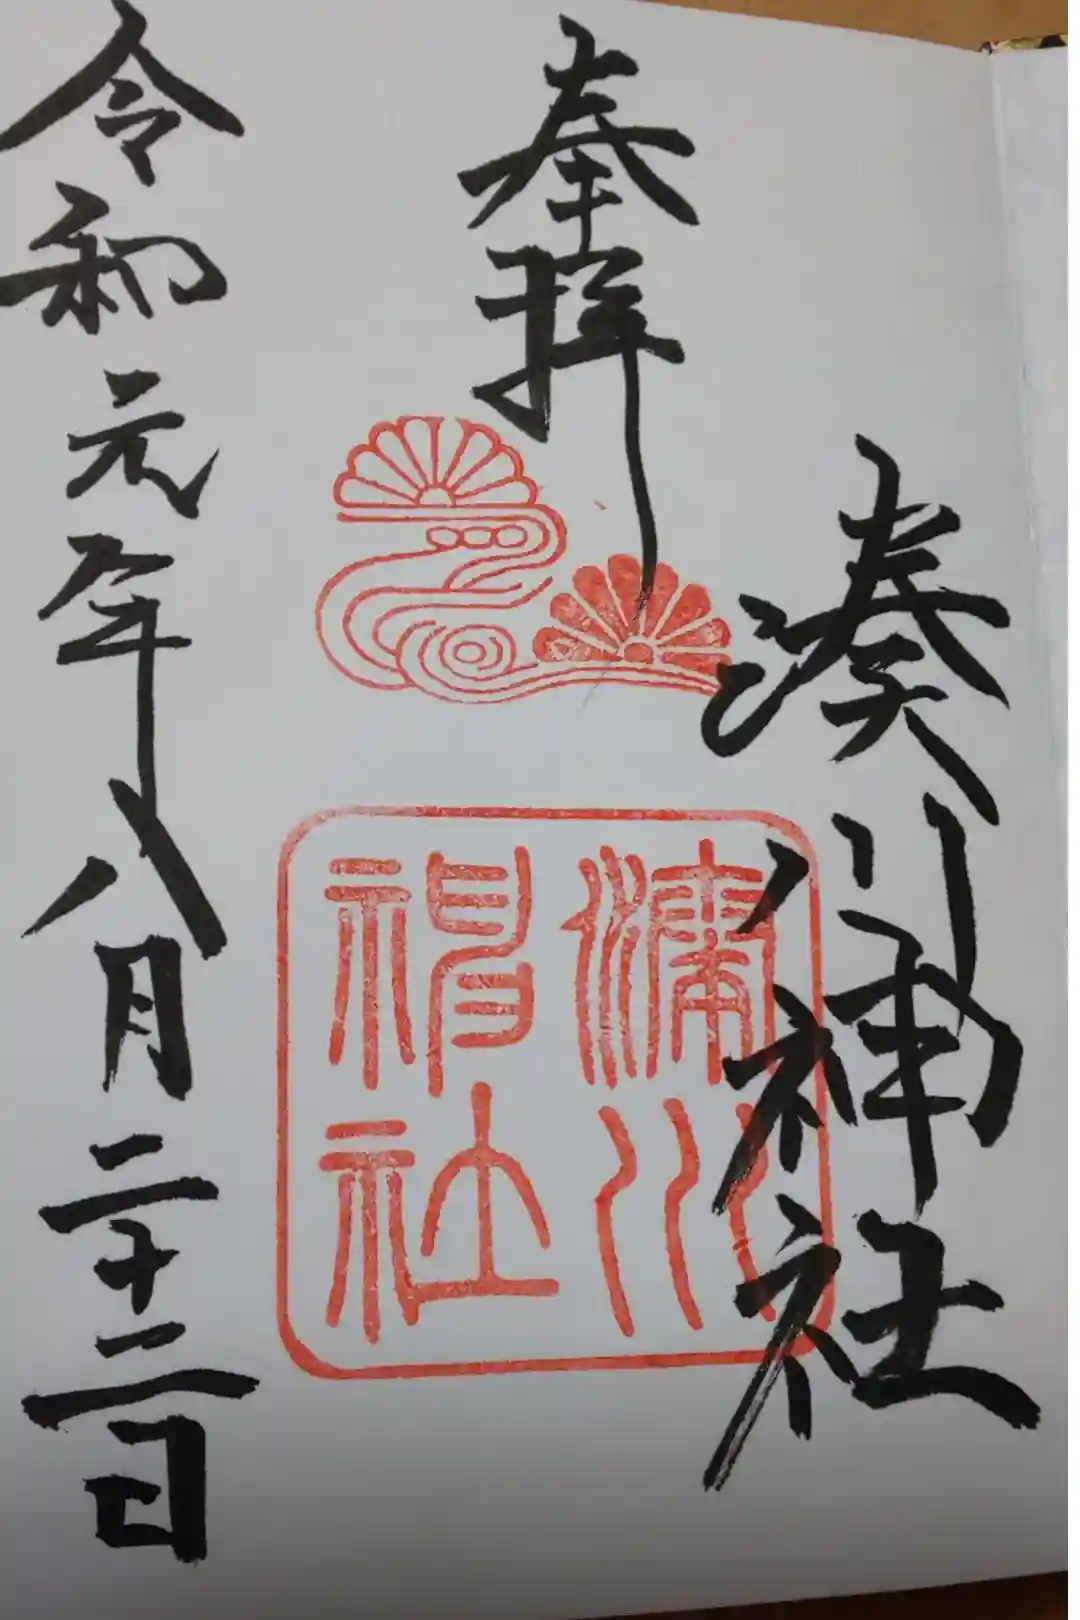 奉拝
湊川神社
湊川
神社
令和元年八月二十二日